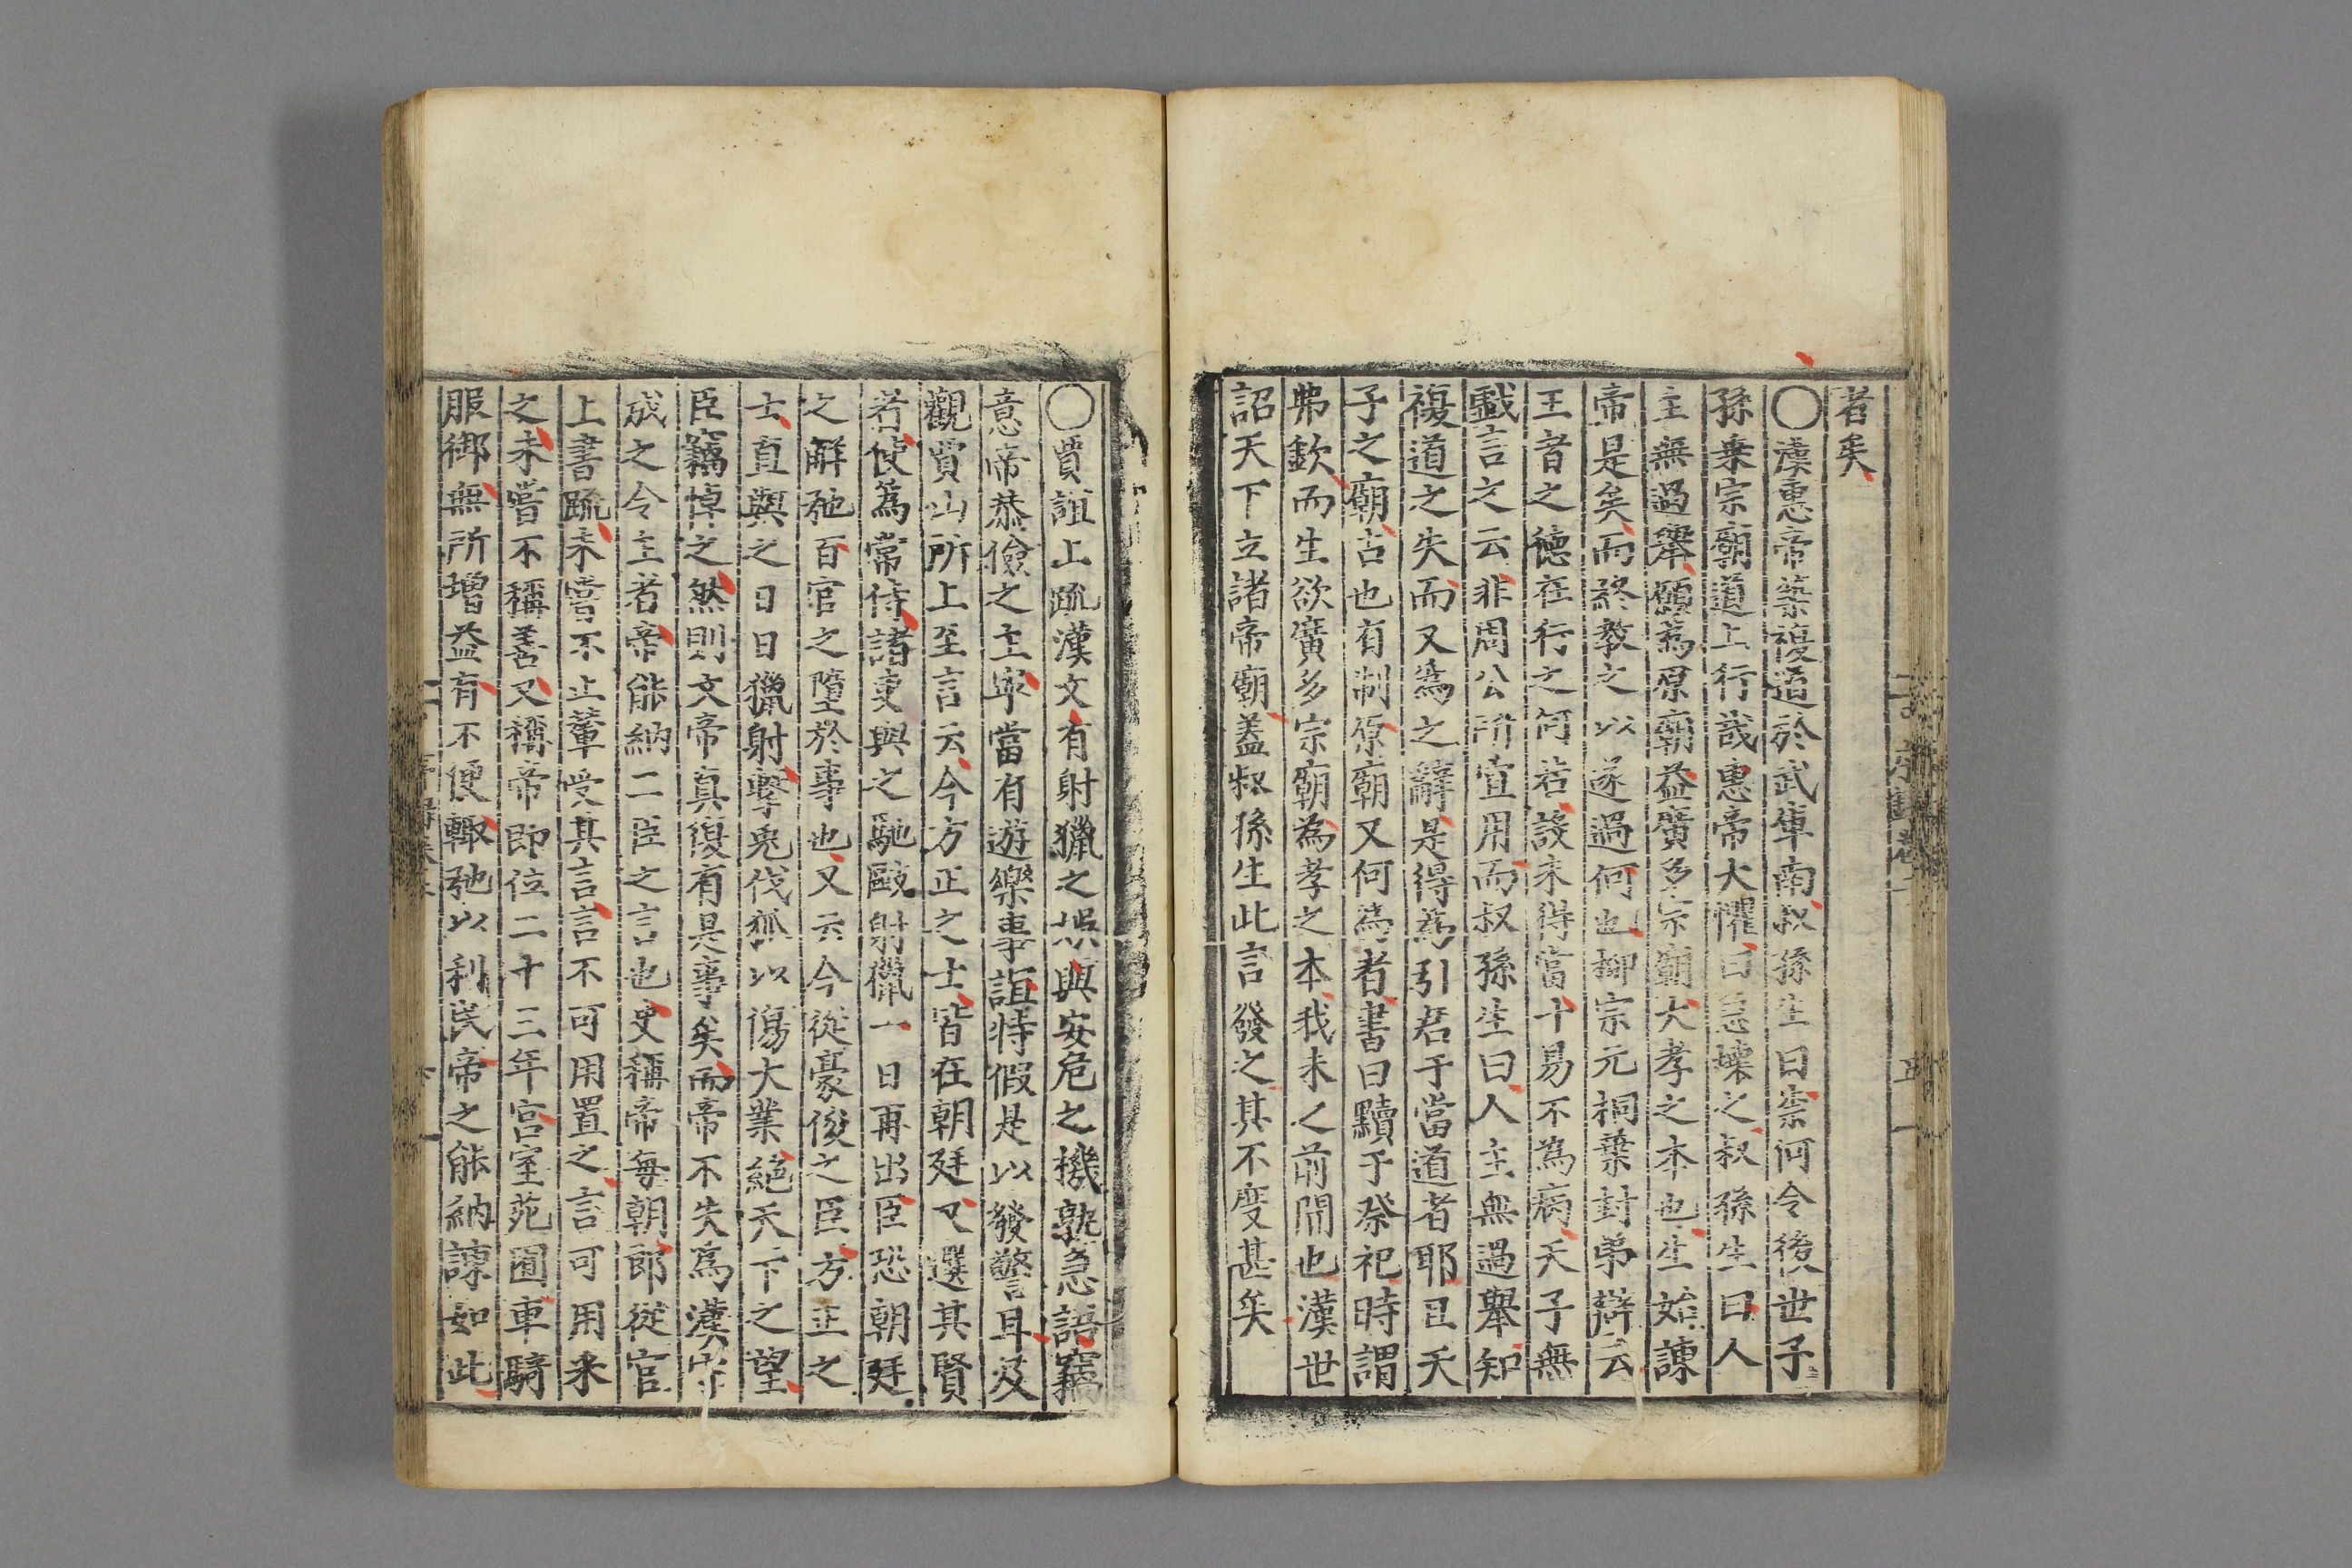 者矣
○漢惠帝築複道於武庫南叔孫生曰柰何令後世子
孫乗宗廟道上行哉惠帝大懼曰急壊之叔孫生曰人
主無過舉願爲原廟益廣多宗廟大孝之本也生始諫
帝是矣而終教之以遂過何也柳宗元桐葉封弟辯云
王者之德在行之何若設未得當十易不為病天子無
戱言之云非周公所宜用而叔孫生曰人主無過舉知
複道之失而又爲之辭是得爲引君于當道者耶且夭
子之廟古也有制原廟又何爲者書曰黷于祭祀時謂
弗欽而生欲廣多宗廟為孝之本我未之前聞也漢世
詔天下立諸帝廟蓋叔孫生此言發之其不度甚矣
○賈誼上疏漢文有射獵之娛與安危之機孰急語竊
意帝恭儉之主寕當有遊樂事誼特假是以發警耳及
觀賈山所上至言云今方正之士皆在朝廷又選其賢
者使爲常侍諸吏與之馳毆射獵一日再出臣恐朝廷
之觧弛百官之墮於事也又云今從豪俊之臣方正之
士直與之日日獵射擊兎伐狐以傷大業絶天下之望
臣竊悼之然則文帝真復有是事矣而帝不失爲漢
成之令主者帝能納二臣之言也史稱帝每朝郎從官
上書疏未嘗不止輦受其言言不可用置之言可用采
之未嘗不稱善又稱帝即位二十三年宫室苑囿車騎
服御無所增益有不便輙弛以利民帝之能納諫如此